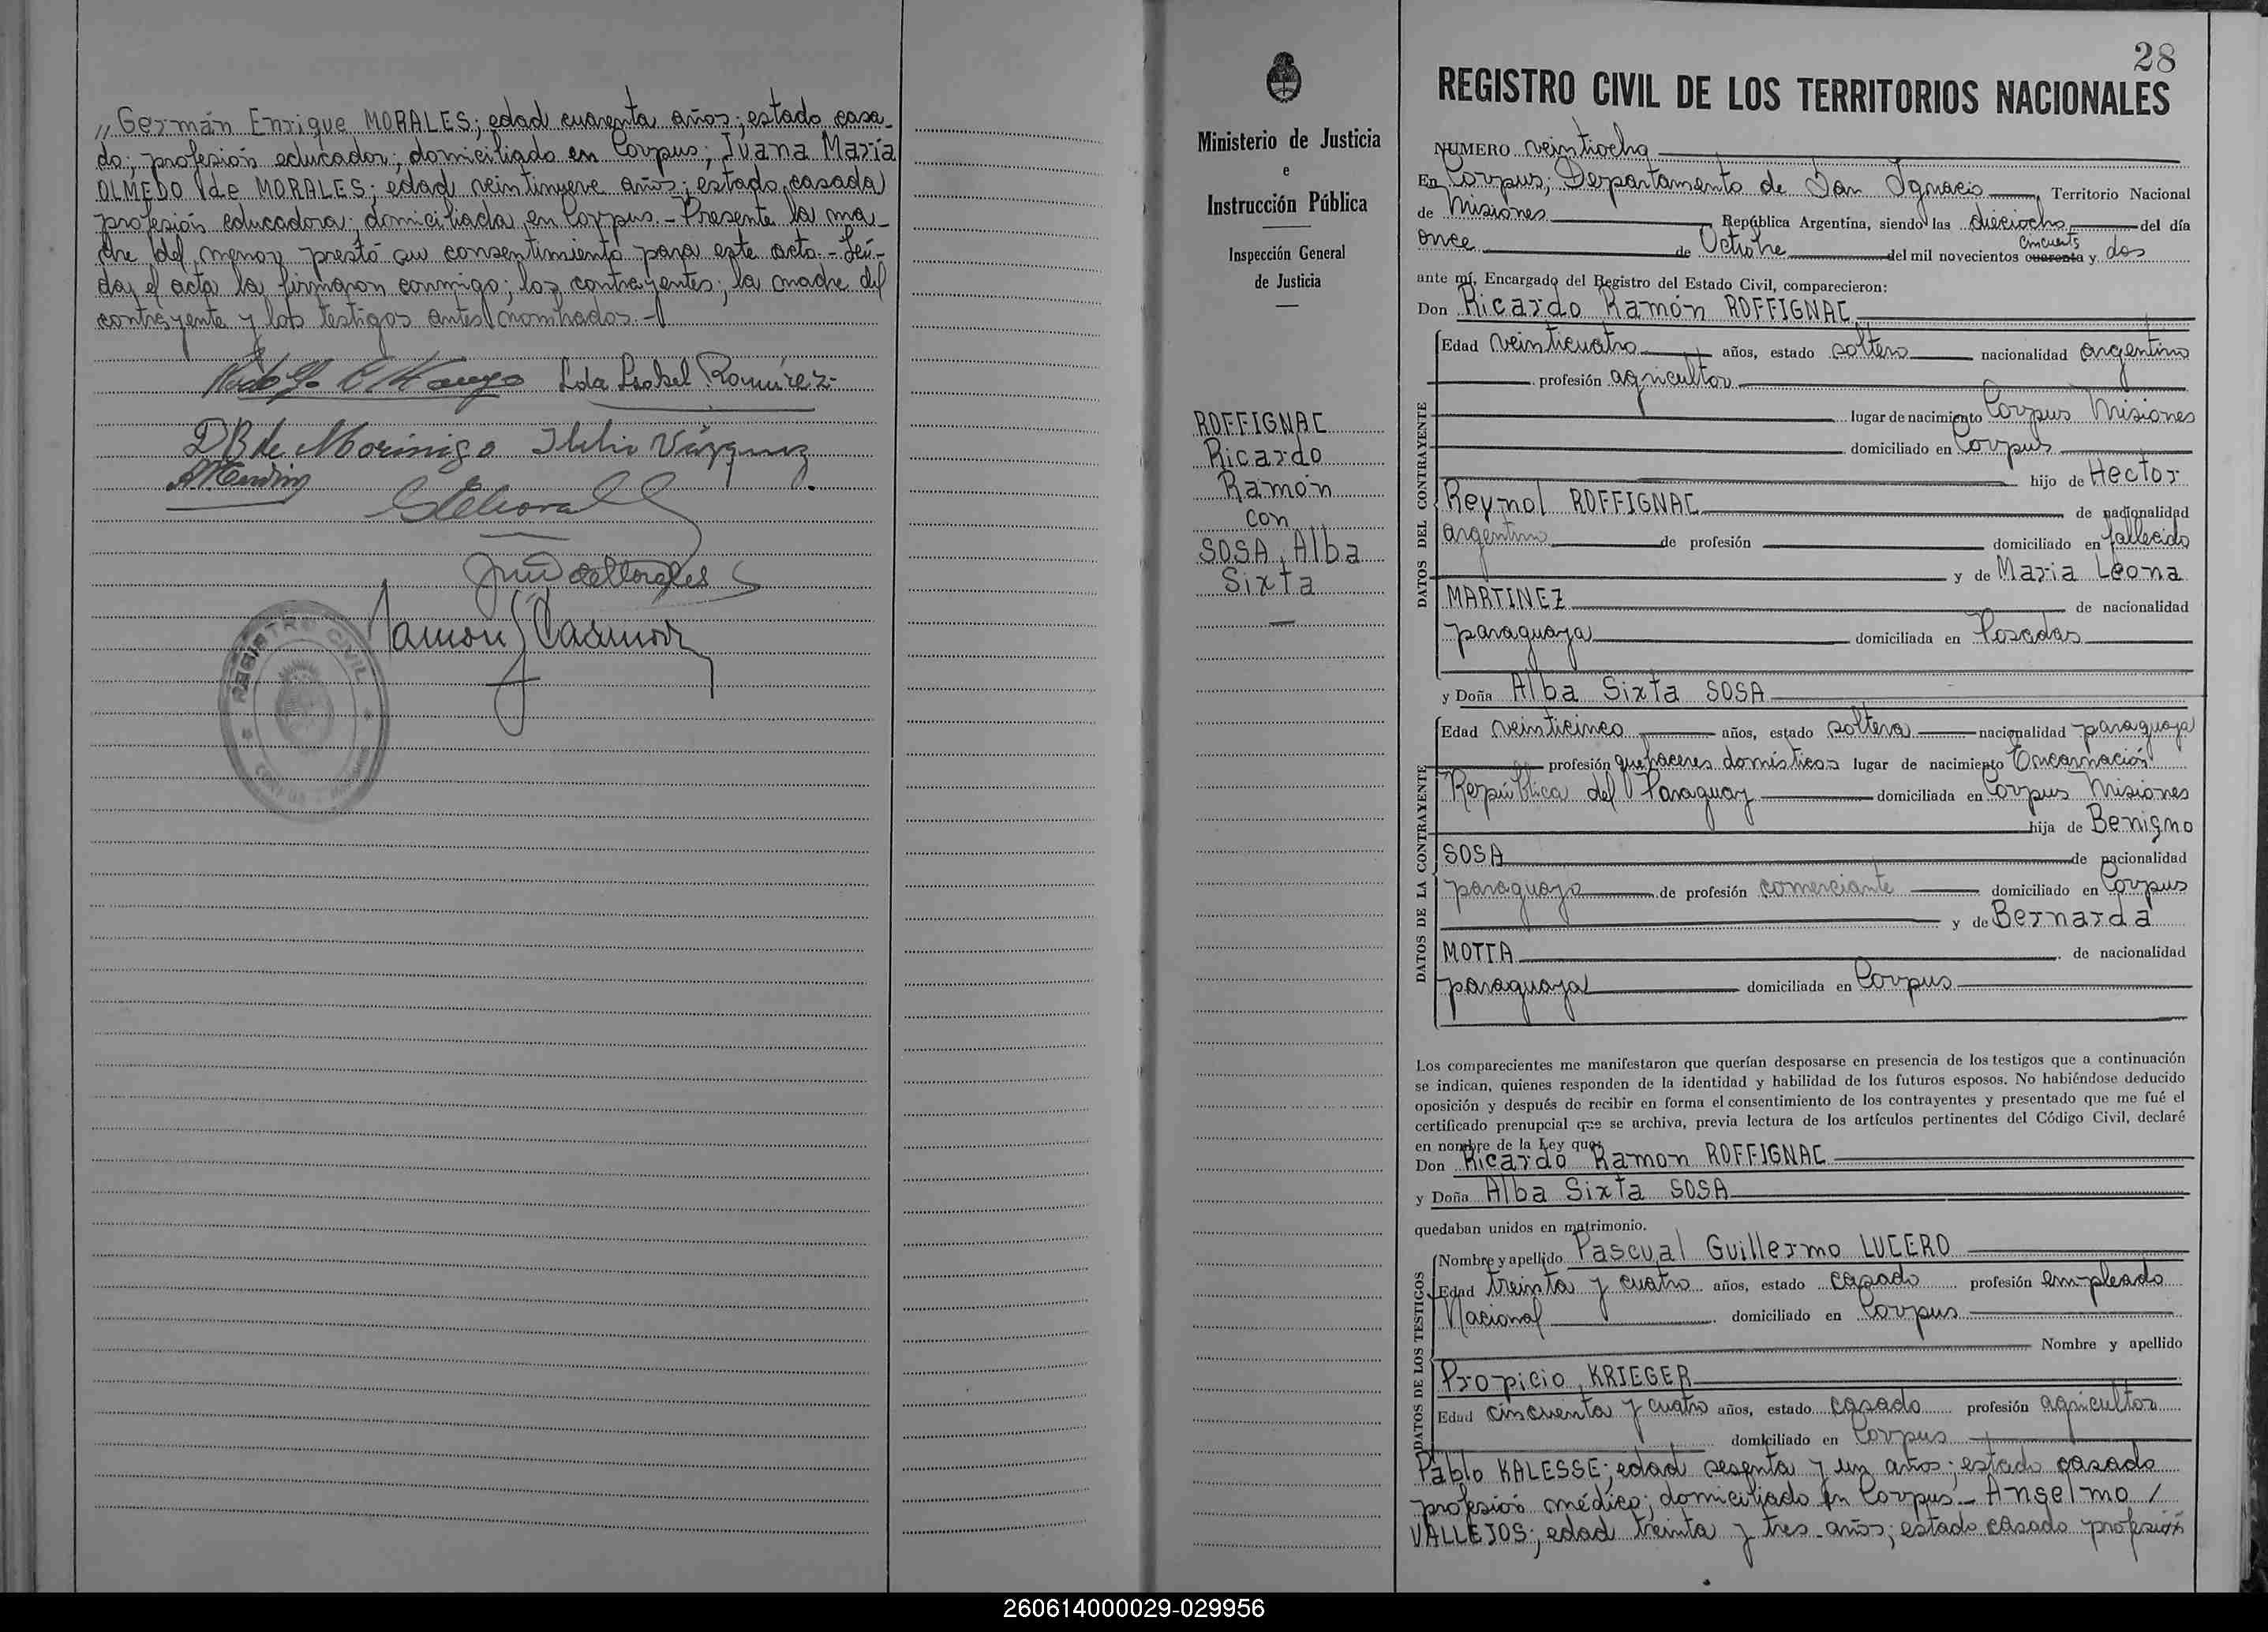 „ Germán Enrique MORALES; edad cuarenta años; estado casa-
do; profesión educador; domiciliado en Corpus; Juana María
OLMEDO de MORALES; edad veintinueve años; estado casada
profesión educadora; domiciliada en Corpus.- Presente la ma-
dre del menor prestó su consentimiento para este acto.- Leí-
da el acta la firmaron conmigo; los contrayentes; la madre del
contrayente y los testigos antes nombrados.-
Lda Isabel Ramírez
D B de Morinigo
REGISTRO CIVIL
Ministerio de Justicia
e
Instrucción Pública
Inspección General
de Justicia
ROFFIGNAC
Ricardo
Ramón
con
SOSA, Alba
Sixta
28
REGISTRO CIVIL DE LOS TERRITORIOS NACIONALES
NUMERO veintiocho
En Corpus; Departamento de San Ignacio Territorio Nacional
de Misiones República Argentina, siendo las dieciocho del día
once de Octubre del mil novecientos cuarenta cincuenta y dos
ante mí, Encargado del Registro del Estado Civil, comparecieron:
Don Ricardo Ramón ROFFIGNAC
Edad veinticuatro años, estado soltero nacionalidad argentino
profesión agricultor
lugar de nacimiento Corpus Misiones
domiciliado en Corpus
hijo de Hector
Reynol ROFFIGNAC de nacionalidad
argentino de profesión domiciliado en fallecido
y de Maria Leona
MARTINEZ de nacionalidad
paraguaya domiciliada en Posadas
DATOS DEL CONTRAYENTE
y Doña Alba Sixta SOSA
Edad veinticinco años, estado soltera nacionalidad paraguaya
profesión quehaceres domésticos lugar de nacimiento Encarnación
República del Paraguay domiciliada en Corpus Misiones
hija de Benigno
SOSA de nacionalidad
paraguayo de profesión comerciante domiciliado en Corpus
y de Bernarda
MOTTA de nacionalidad
paraguaya domiciliada en Corpus
DATOS DE LA CONTRAYENTE
Los comparecientes me manifestaron que querían desposarse en presencia de los testigos que a continuación
se indican, quienes responden de la identidad y habilidad de los futuros esposos. No habiéndose deducido
oposición y después de recibir en forma el consentimiento de los contrayentes y presentado que me fué el
certificado prenupcial que se archiva, previa lectura de los artículos pertinentes del Código Civil, declaré
en nombre de la Ley que:
Don Ricardo Ramon ROFFIGNAC
y Doña Alba Sixta SOSA
quedaban unidos en matrimonio.
Nombre y apellido Pascual Guillermo LUCERO
Edad treinta y cuatro años, estado casado profesión empleado
Nacional domiciliado en Corpus
Nombre y apellido
Propicio KRIEGER
Edad cincuenta y cuatro años, estado casado profesión agricultor
domiciliado en Corpus
DATOS DE LOS TESTIGOS
Pablo KALESSE; edad sesenta y un años; estado casado
profesión médico; domiciliado en Corpus - Anselmo /
VALLEJOS; edad treinta y tres años; estado casado profesión
260614000029-029956